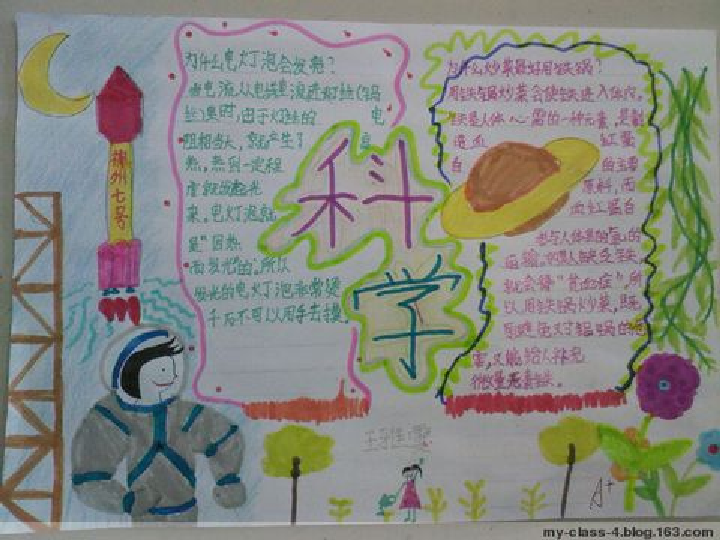 为什么电灯泡会发热?
当电流从电线里流进灯丝(钨
丝)里时,由于灯丝的 电
阻相当大,就产生了
热,热到一定程
度就发起光
来,电灯泡就
是"因热
而发光"的,所以
发光的电灯泡非常烫
千万不可以用手去摸。
科
学
神州七号
为什么炒菜最好用铁锅?
用铁锅炒菜会使铁进入体内,
铁是人体必需的一种元素,是制
造血 红蛋
白 的主要
原料,而
血红蛋白
参与人体里的氧的
运输,如果人缺乏铁,
就会得"贫血症",所
以用铁锅炒菜,既
害,又能给人补充
微量元素铁。
A+
my-class-4.blog.163.com